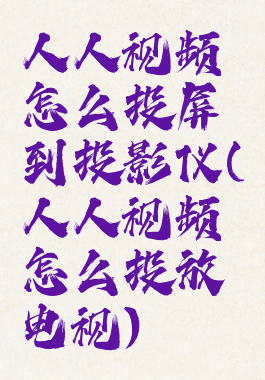 人人视频
怎么投屏
到投影仪(
人人视频
怎么投放
电视)